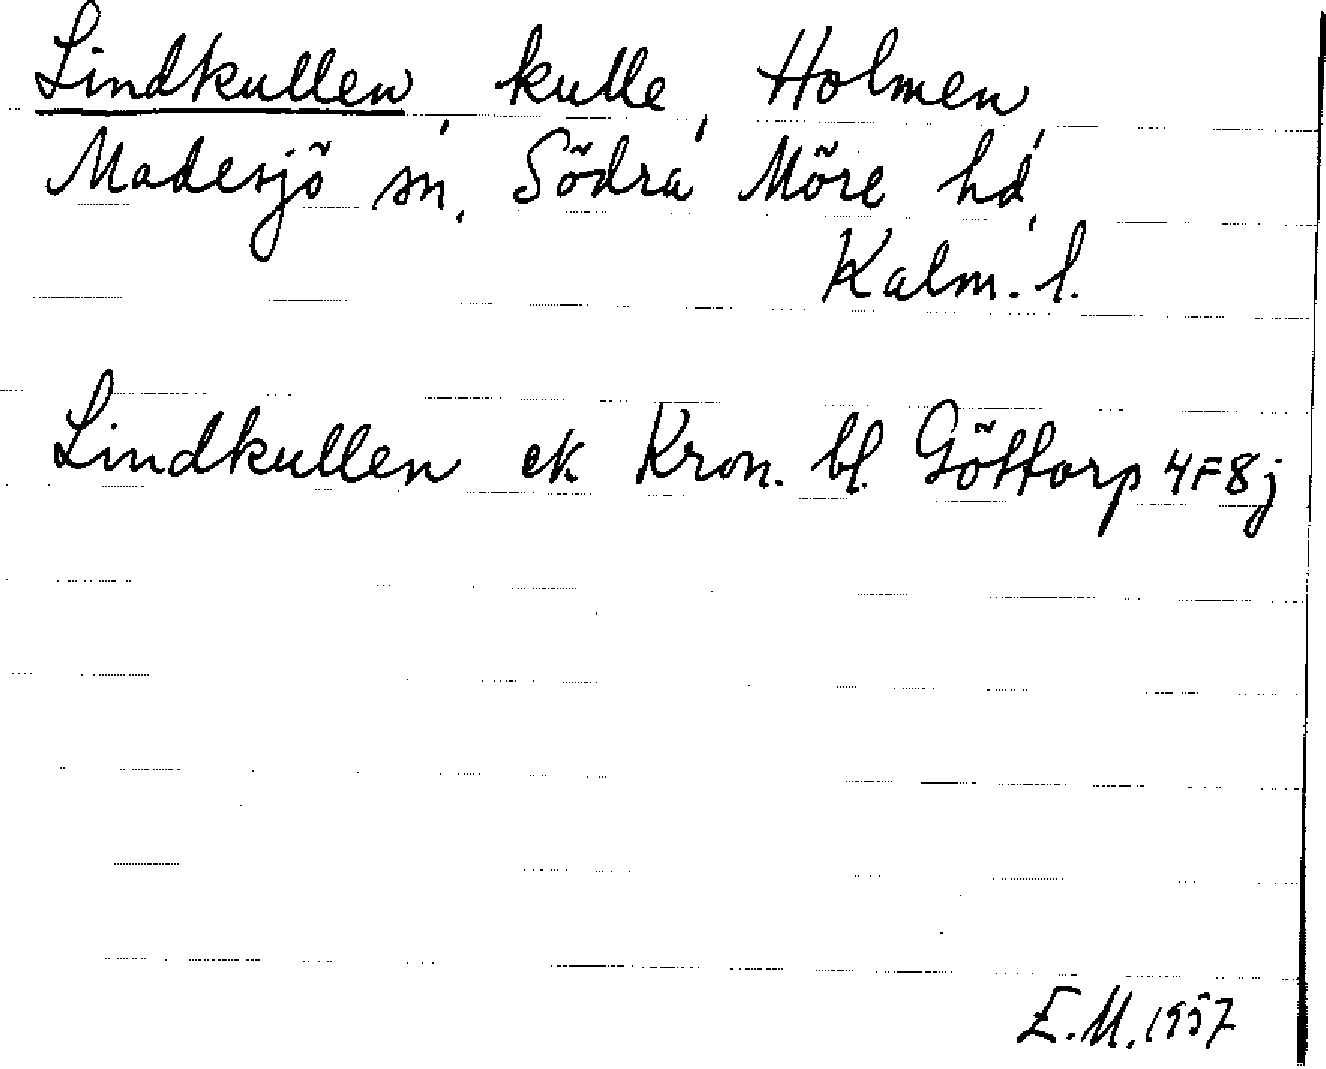 Lindkullen, kulle, Holmen,
Madesjö sn, Södra Möre hd,
Kalm. l.
Lindkullen ek Kron. bl. Göttorp 4F8j
E.M. 1957